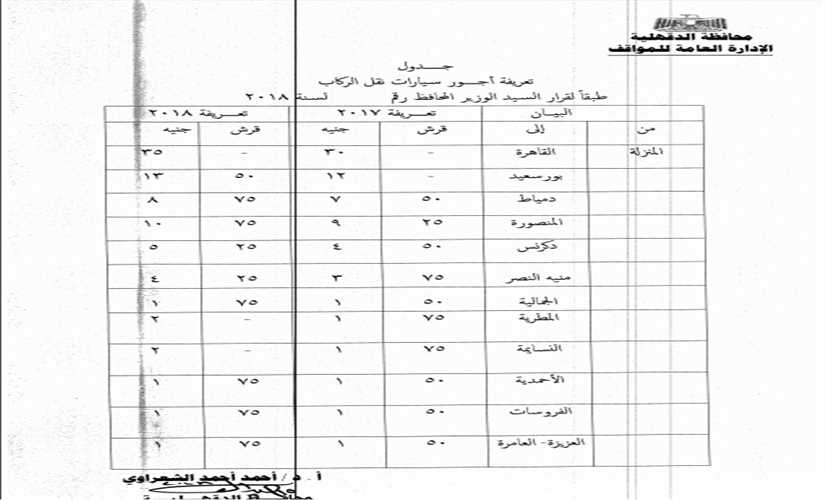 محافظة الدقهلية
الإدارة العامة للمواقف
جـــدول
تعريفة أجـور سـيارات نقل الركاب
طبقاً لقرار السيد الوزير المحافظ رقم لسنة ٢٠١٨
البيـان تعـريفة ٢٠١٧ تعـريفة ٢٠١٨
من إلى قرش جنيه قرش جنيه
المنزلة القاهرة - ٣٠ - ٣٥
بورسعيد - ١٢ ٥٠ ١٣
دمياط ٥٠ ٧ ٧٥ ٨
المنصورة ٢٥ ٩ ٧٥ ١٠
دكرنس ٥٠ ٤ ٢٥ ٥
منيه النصر ٧٥ ٣ ٢٥ ٤
الجمالية ٥٠ ١ ٧٥ ١
المطرية ٧٥ ١ - ٢
النسايمة ٧٥ ١ - ٢
الأحمدية ٥٠ ١ ٧٥ ١
الفروسات ٥٠ ١ ٧٥ ١
العزيزة - العامرة ٥٠ ١ ٧٥ ١
أ . د / أحمد أحمد الشعراوي
محافظ الدقهلية